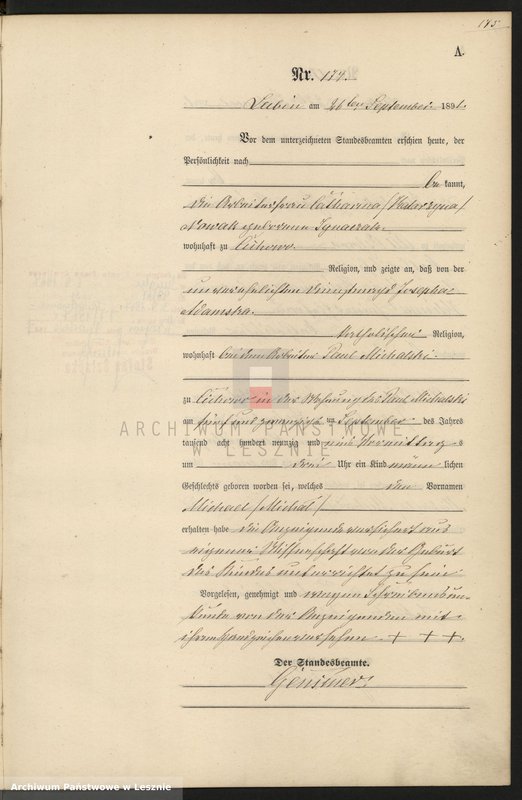 175
A.
Nr. 174.
Lubin am 26 ten September 1891.
Vor dem unterzeichneten Standesbeamten erschien heute, der
Persönlichkeit nach
be kannt,
die Arbeiterfrau Catharina /Katarzyna/
Nowak geborene Ignaczak
wohnhaft zu Cichowo
Religion, und zeigte an, daß von der
unverehelichten Dienstmagd Josepha
Adamska
katholischer Religion,
wohnhaft bei dem Arbeiter Paul Michalski
zu Cichowo in der Wohnung des Paul Michalski
am fünf und zwanzigsten September des Jahres
tausend acht hundert neunzig und eins Vormittags
um drei Uhr ein Kind männ lichen
Geschlechts geboren worden sei, welches den Vornamen
Michael /Michał/
erhalten habe die Anzeigende versichert aus
eigener Wissenschaft von der Geburt
des Kindes unterrichtet zu sein
Vorgelesen, genehmigt und wegen Schreibensun-
kunde von der Anzeigenden mit
ihrem Handzeichen versehen + + +.
Der Standesbeamte.
ARCHIWUM PAŃSTWOWE
W LESZNIE
Archiwum Państwowe w Lesznie